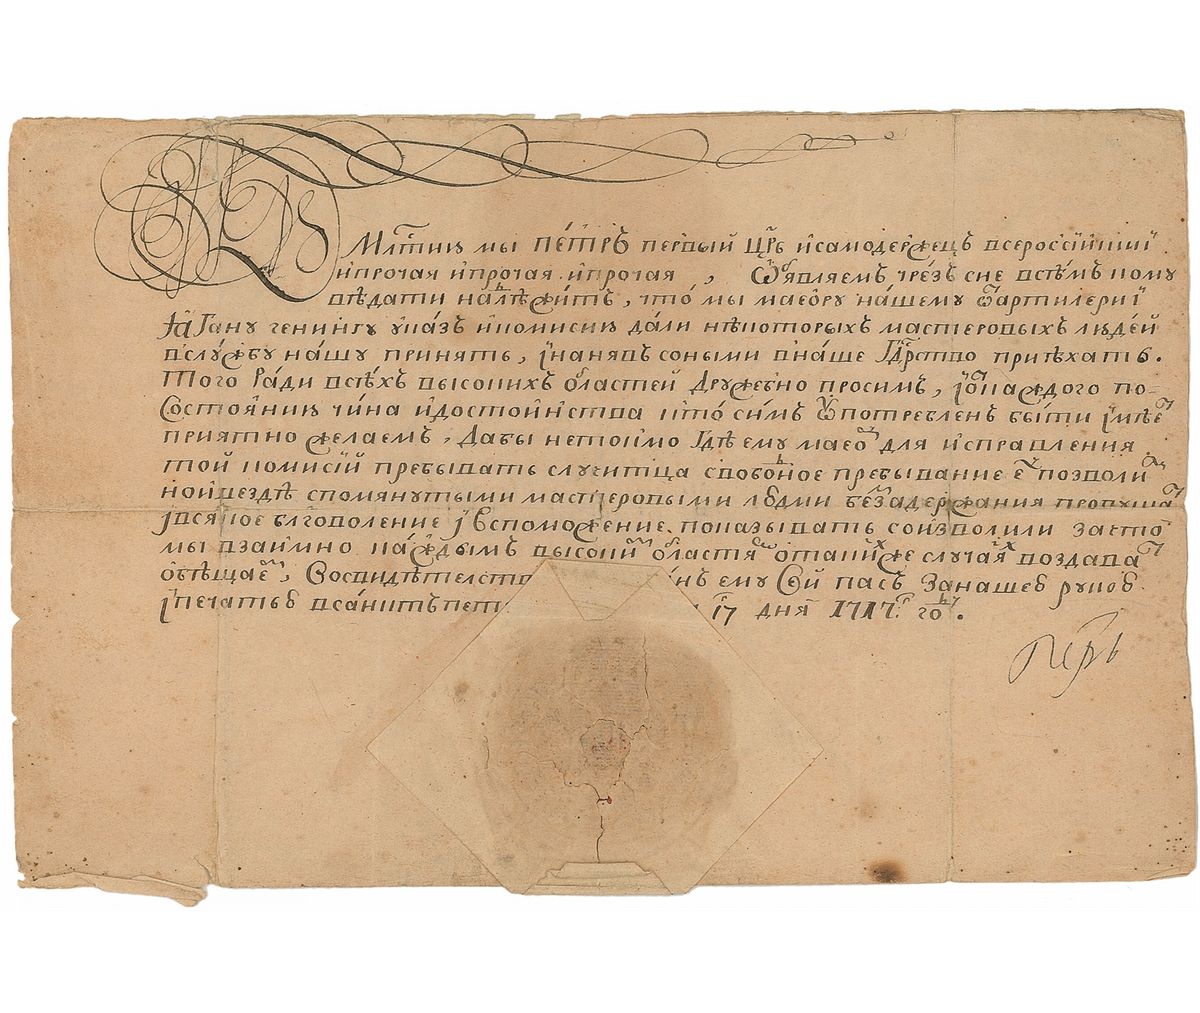 Млстию мы ПЕТРЪ первый Црь исамодержецъ всероссийский
ипрочая ипрочая ипрочая, Объявляемъ чрезъ сие всѣмъ кому
вѣдати надлежитъ, что мы маеору нашему отартилерии
Ягану генингу указъ икомисию дали нѣкоторыхъ мастеровыхъ людей
вслужбу нашу принять, инанявъ соными внаше Гдрство приѣхать.
Того Ради всѣхъ высокихъ областей Дружебно просимъ, икаждого по
Состоянию чина идостоинства кто симъ употребленъ быти имѣет
приятно желаемъ, Дабы нетокмо Гдѣ ему маеору для исправления
той комисии пребывать случитца свободное пребывание ему позволили
ноивездѣ спомянутыми мастеровыми людми беззадержания пропущат
ивсякое блговоление ивспоможение показывать соизволили зачто
мы взаимно каждымъ высоким областям втакихже случаях воздават
обѣщаем, Восвидѣтелство нъ ему Сей пасъ Занашею рукою
ипечатью всанктъпет 17 дня 1717г году.
Петръ